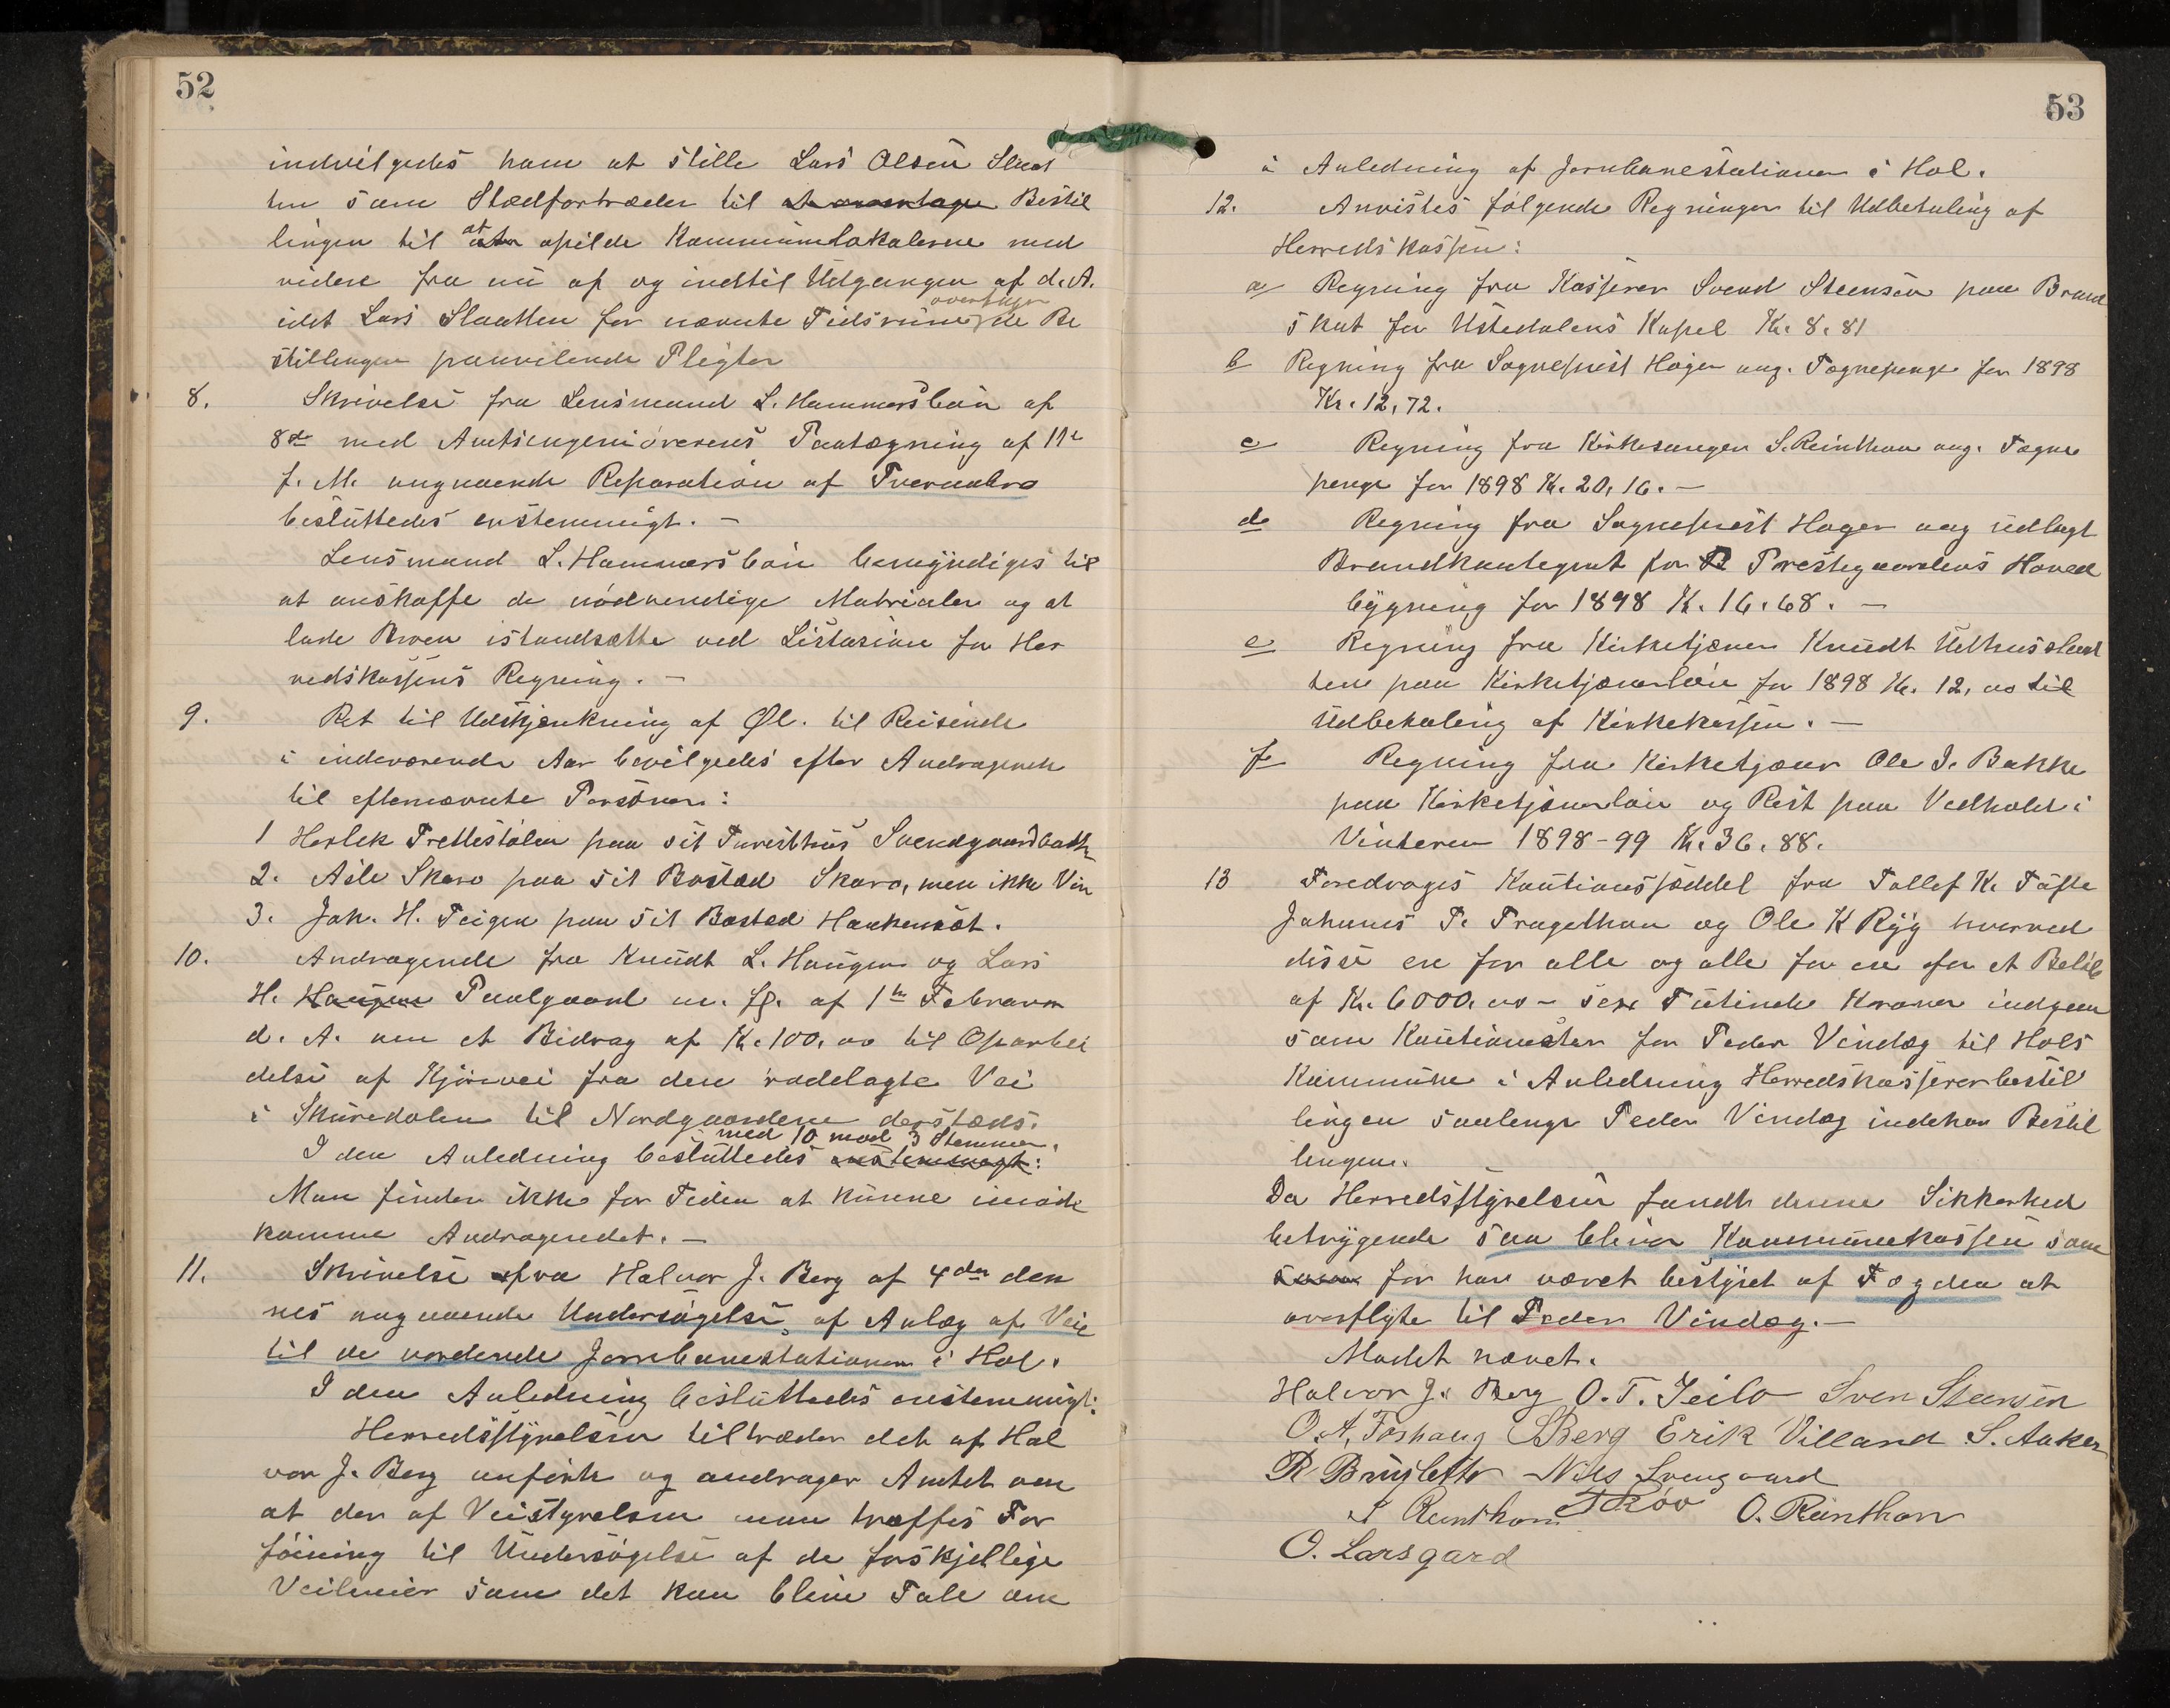 52
indvilgedes ham at stille Lars Olsen Slaat
ten som Stedfortræder til at overtage Bestil
lingen til at opilde Kommunelokalerne med
videre fra nu af og indtil Udgangen af d. A.
idet Lars Slaatten for nævnte Tidsrum overtager de Be
stillingen paahvilende Pligter
8. Skrivelse fra Lensmand L. Hammersbøn af
8de med Amtsingeniørerens Paategning af 11te
f. M. angaaende Reparation af Tvernabro
besluttedes enstemmigt. —
Lensmand L. Hammersbøn bemyndiges til
at anskaffe de nødvendige Matrialer og at
lade Broen istandsætte ved Listasion for Her
redskassens Regning. —
9. Ret til Udskjænkning af Øl. til Reisende
i indeværende Aar bevilgedes efter Andragende
til efternævnte Personer:
1 Herlek Trettestølen paa sit Turisthus Svendgaardbotten
2. Asle Skaro paa sit Bosted Skaro, men ikke Vin
3. Joh. H. Teigen paa sit Bosted Haakensæt.
10. Andragende fra Knudt L. Haugen og Lars
H. Haugen Paalgaard m. fl. af 1te Februar
d. A. om et Bidrag af Kr. 100.00 til Oparbei
delse af Kjørevei fra den rodelagte Vei
i Skuredalen til Nordgaardene dersteds.
med 10 mod 3 Stemmer.
I den Anledning besluttedes enstemmigt:
Man finder ikke for Tiden at kunne imøde
komme Andragendet. —
11. Skrivelse fra Halvor J. Berg af 4de den
nes angaaende Undersøgelse af Anlæg af Veie
til de vordende Jernbanestationer i Hol.
I den Anledning besluttedes enstemmigt:
Herredsstyrelsen tiltræder det af Hal
vor J. Berg anførte og andrager Amtet om
at der af Veistyrelsen maa træffes For
føining til Undersøgelse af de forskjellige
Veilinier som det kan blive Tale om
53
i Anledning af Jernbanestationer i Hol.
12. Anvistes følgende Regninger til Udbetaling af
Herredskassen:
a Regning fra Kasserer Svend Steensen paa Brand
skat for Ustedalens Kapel Kr. 8.81
b Regning fra Sogneprest Hager ang. Tognepenge for 1898
Kr. 12,72.
c Regning fra Kirkesanger S. Reinthon ang. Togne
penge for 1898 Kr. 20,16. —
d Regning fra Sogneprest Hager ang udlagt
Brandkontegent for Prestegaardens Hoved
bygning for 1898 Kr. 16.68. —
e Regning fra Kirketjener Knudt Uthusslaat
ten paa Kirketjenerløn for 1898 Kr. 12,00 til
Udbetaling af Kirkekassen. —
f Regning fra Kirketjener Ole I. Bakke
paa Kirketjenerløn og Rest paa Vedhold i
Vinteren 1898-99 Kr. 36.88.
13 Foredrages Kautionsseddel fra Tollef K. Tufte
Johannes T. Tragethon og Ole K Ryg hvorved
disse en for alle og alle for en for et Beløb
af Kr. 6000.00 – sex Tusinde Kroner indgaar
som Kautionister for Peder Vindeg til Hols
Kommune i Anledning Herredskassererbestil
lingen saalenge Peder Vindeg indehar Bestil
lingen.
Da Herredsstyrelsen fandt denne Sikkerhed
betryggende saa bliver Kommunekassen som
før har været bestyret af Fogden at
overflytte til Peder Vindeg. —
Mødet hævet.
Halvor J. Berg O. T. Jeilo Sven Steensen
O. A. Foshaug SBerg Erik Villand S. Aaker
R Bruslettø Nils Svengaard
S Reinthon TKøv O. Reinthon
O. Larsgard